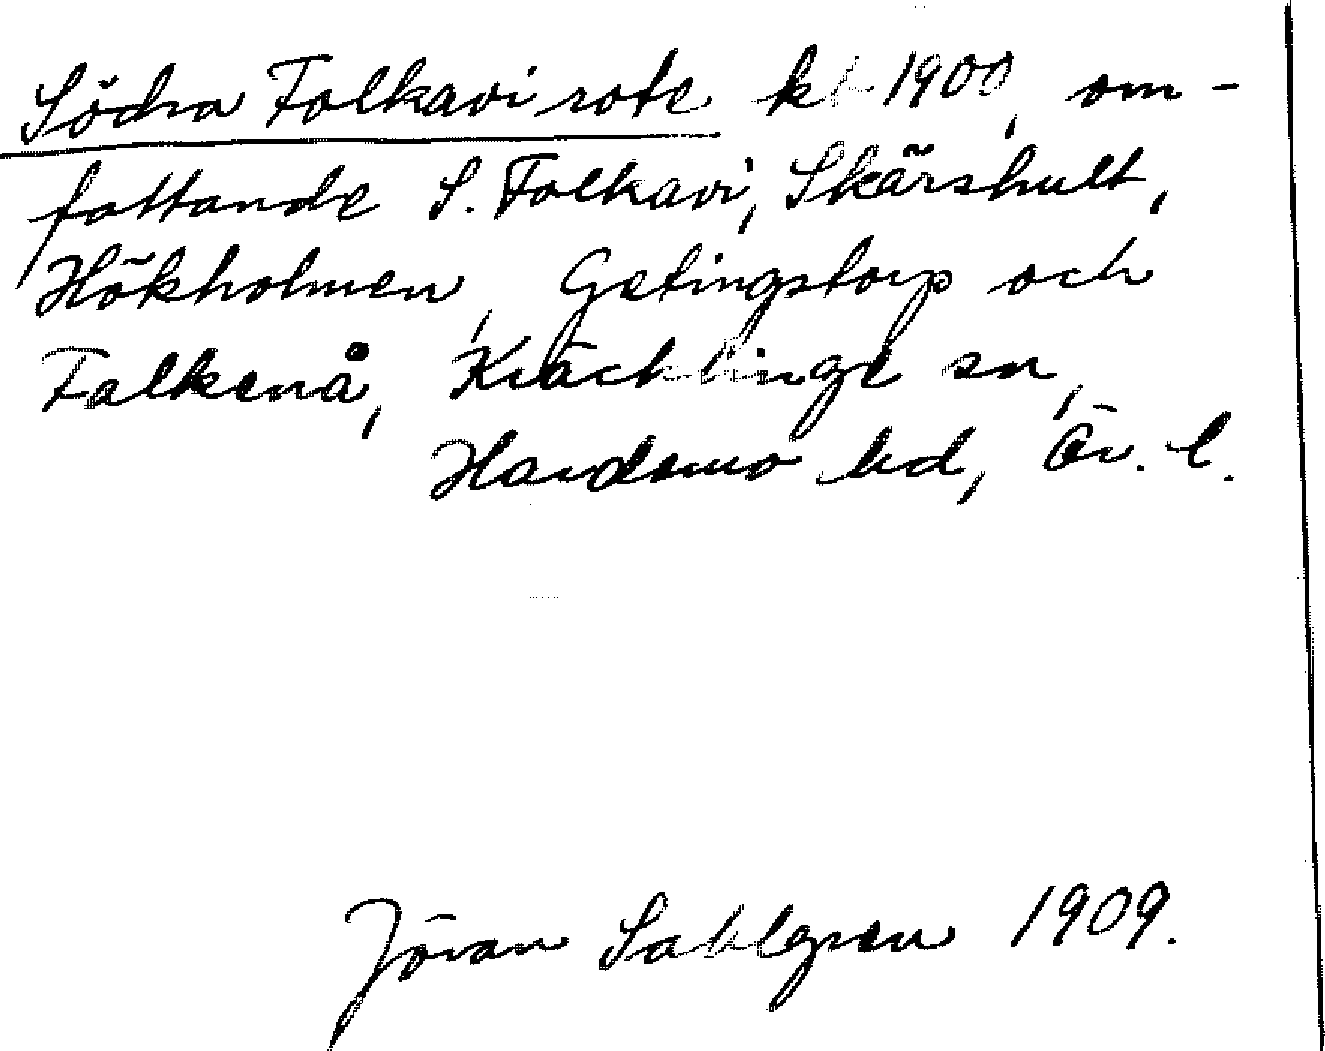 Södra Folkavi rote kl 1900, om-
fattande S. Folkavi, Skärshult,
Hökholmen, Getingstorp och
Falkenå, Kräcklinge sn,
Hardemo hd, Ör. l.
Jöran Sahlgren 1909.